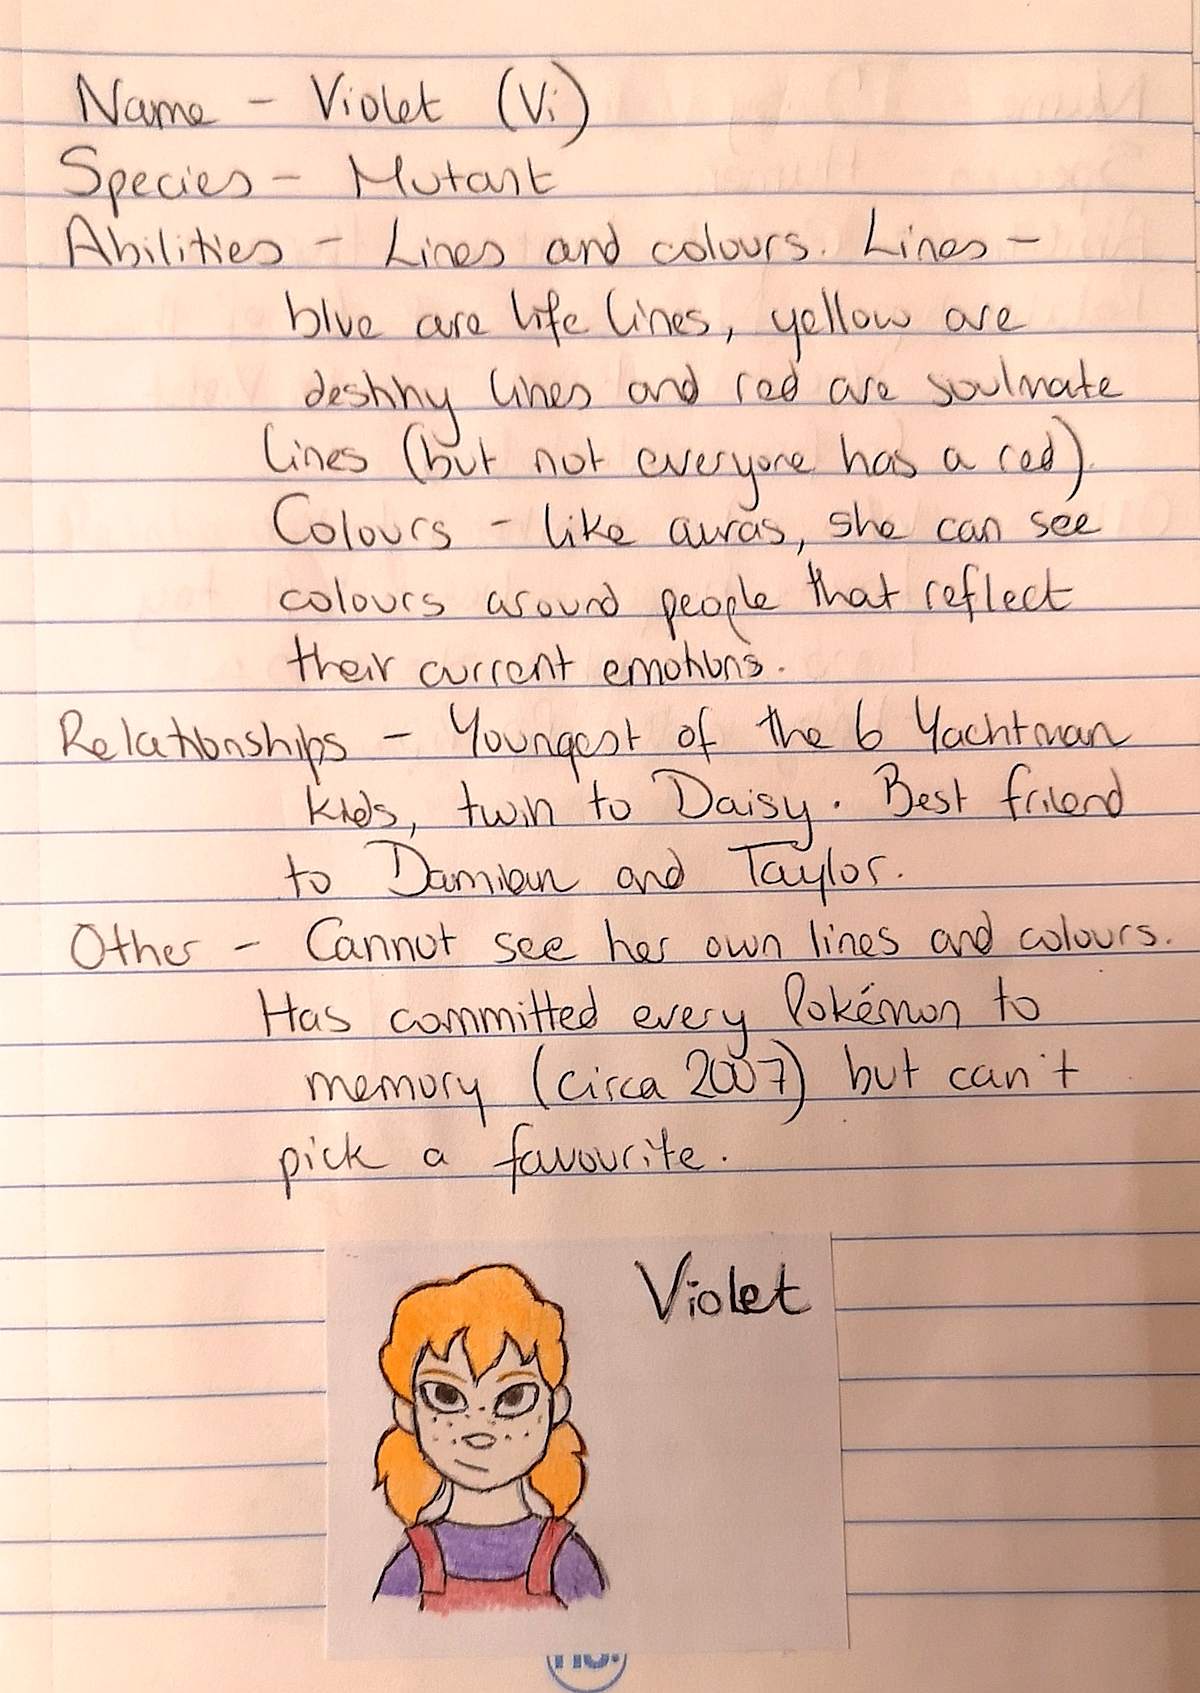 Name - Violet (Vi)
Species - Mutant
Abilities - Lines and colours. Lines -
blue are life lines, yellow are
destiny lines and red are soulmate
lines (but not everyone has a red).
Colours - like auras, she can see
colours around people that reflect
their current emotions.
Relationships - Youngest of the 6 Yachtman
kids, twin to Daisy. Best friend
to Damian and Taylor.
Other - Cannot see her own lines and colours.
Has committed every Pokémon to
memory (circa 2007) but can't
pick a favourite.
Violet